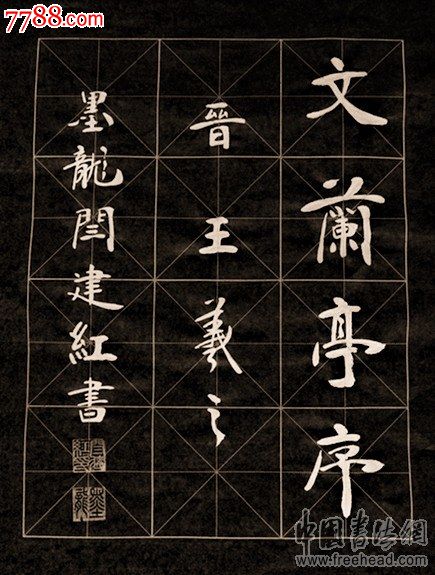 7788.com
文蘭亭序
晉王羲之
墨龍閆建紅書
中国書法網
www.freehead.com